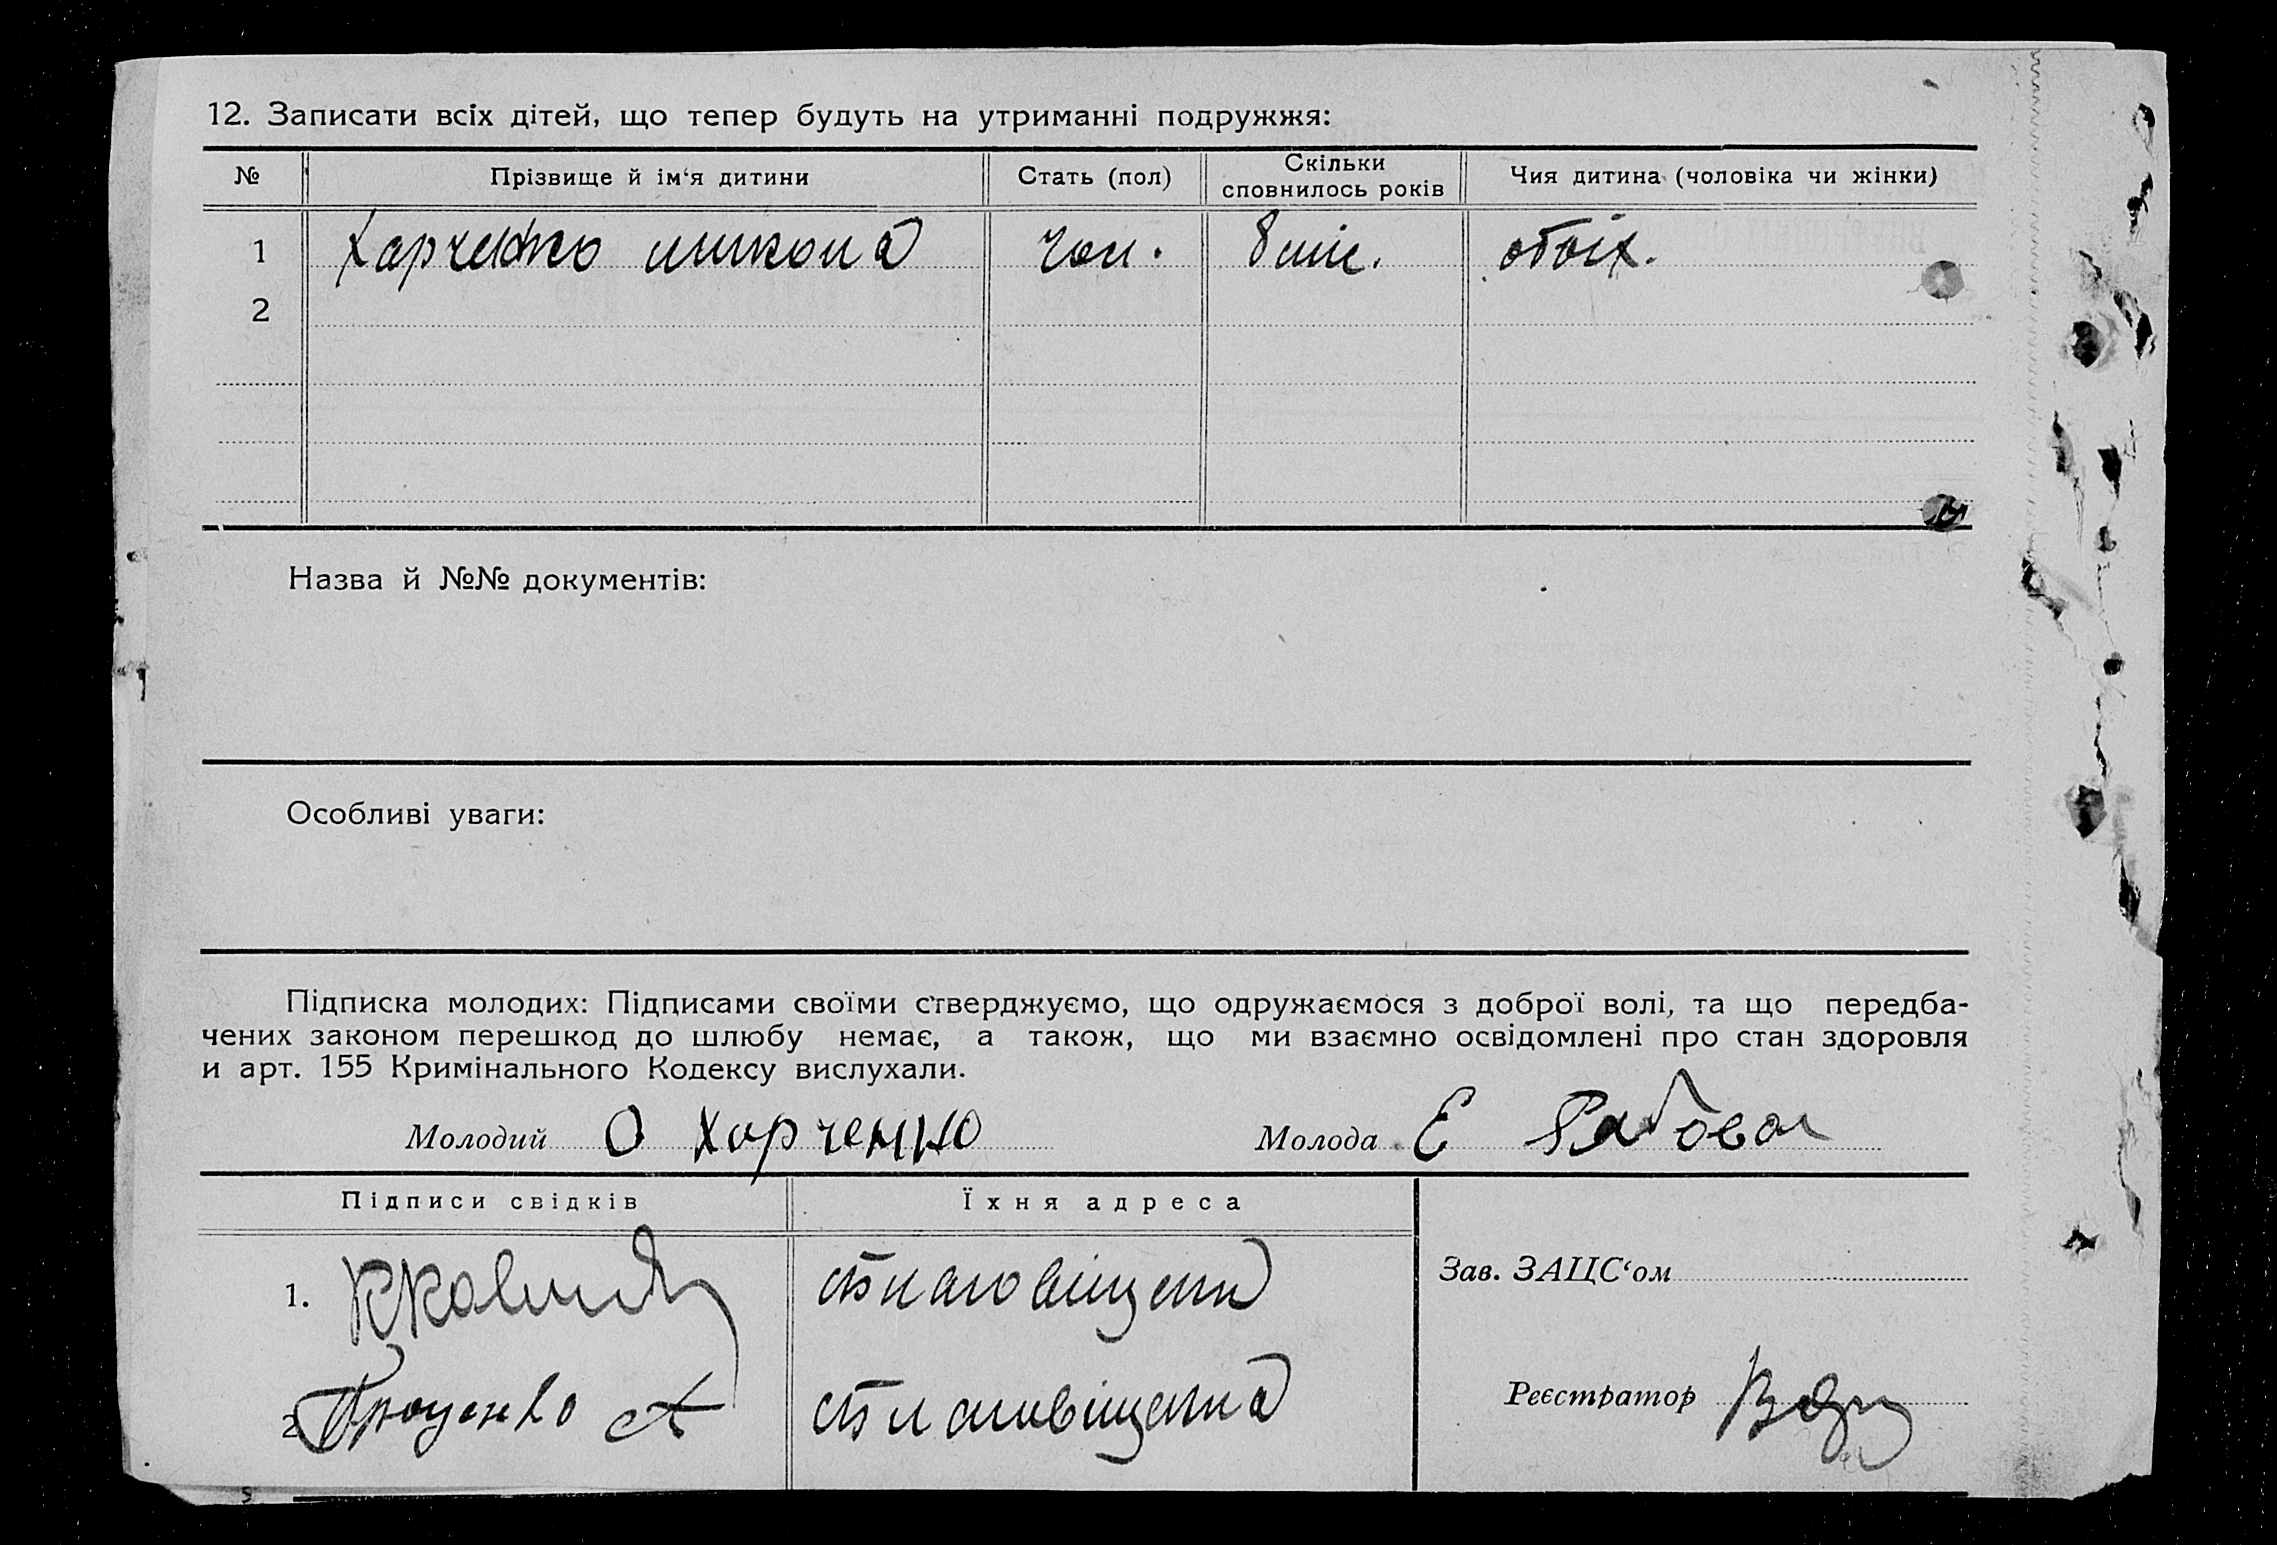 12. Записати всіх дітей, що тепер будуть на утриманні подружжя:
№ Прізвище й ім‘я дитини Стать (пол) Скільки сповнилось років Чия дитина (чоловіка чи жінки)
1 Харченко микола чол. 8 міс. обоіх.
2
Назва й №№ документів:
Особливі уваги:
Підписка молодих: Підписами своїми стверджуємо, що одружаємося з доброї волі, та що передба-
чених законом перешкод до шлюбу немає, а також, що ми взаємно освідомлені про стан здоровля
и арт. 155 Кримінального Кодексу вислухали.
Молодий О Харченко Молода Е
Підписи свідків Їхня адреса
Зав. ЗАЦС‘ом
1.
Реєстратор
2 Проценко А